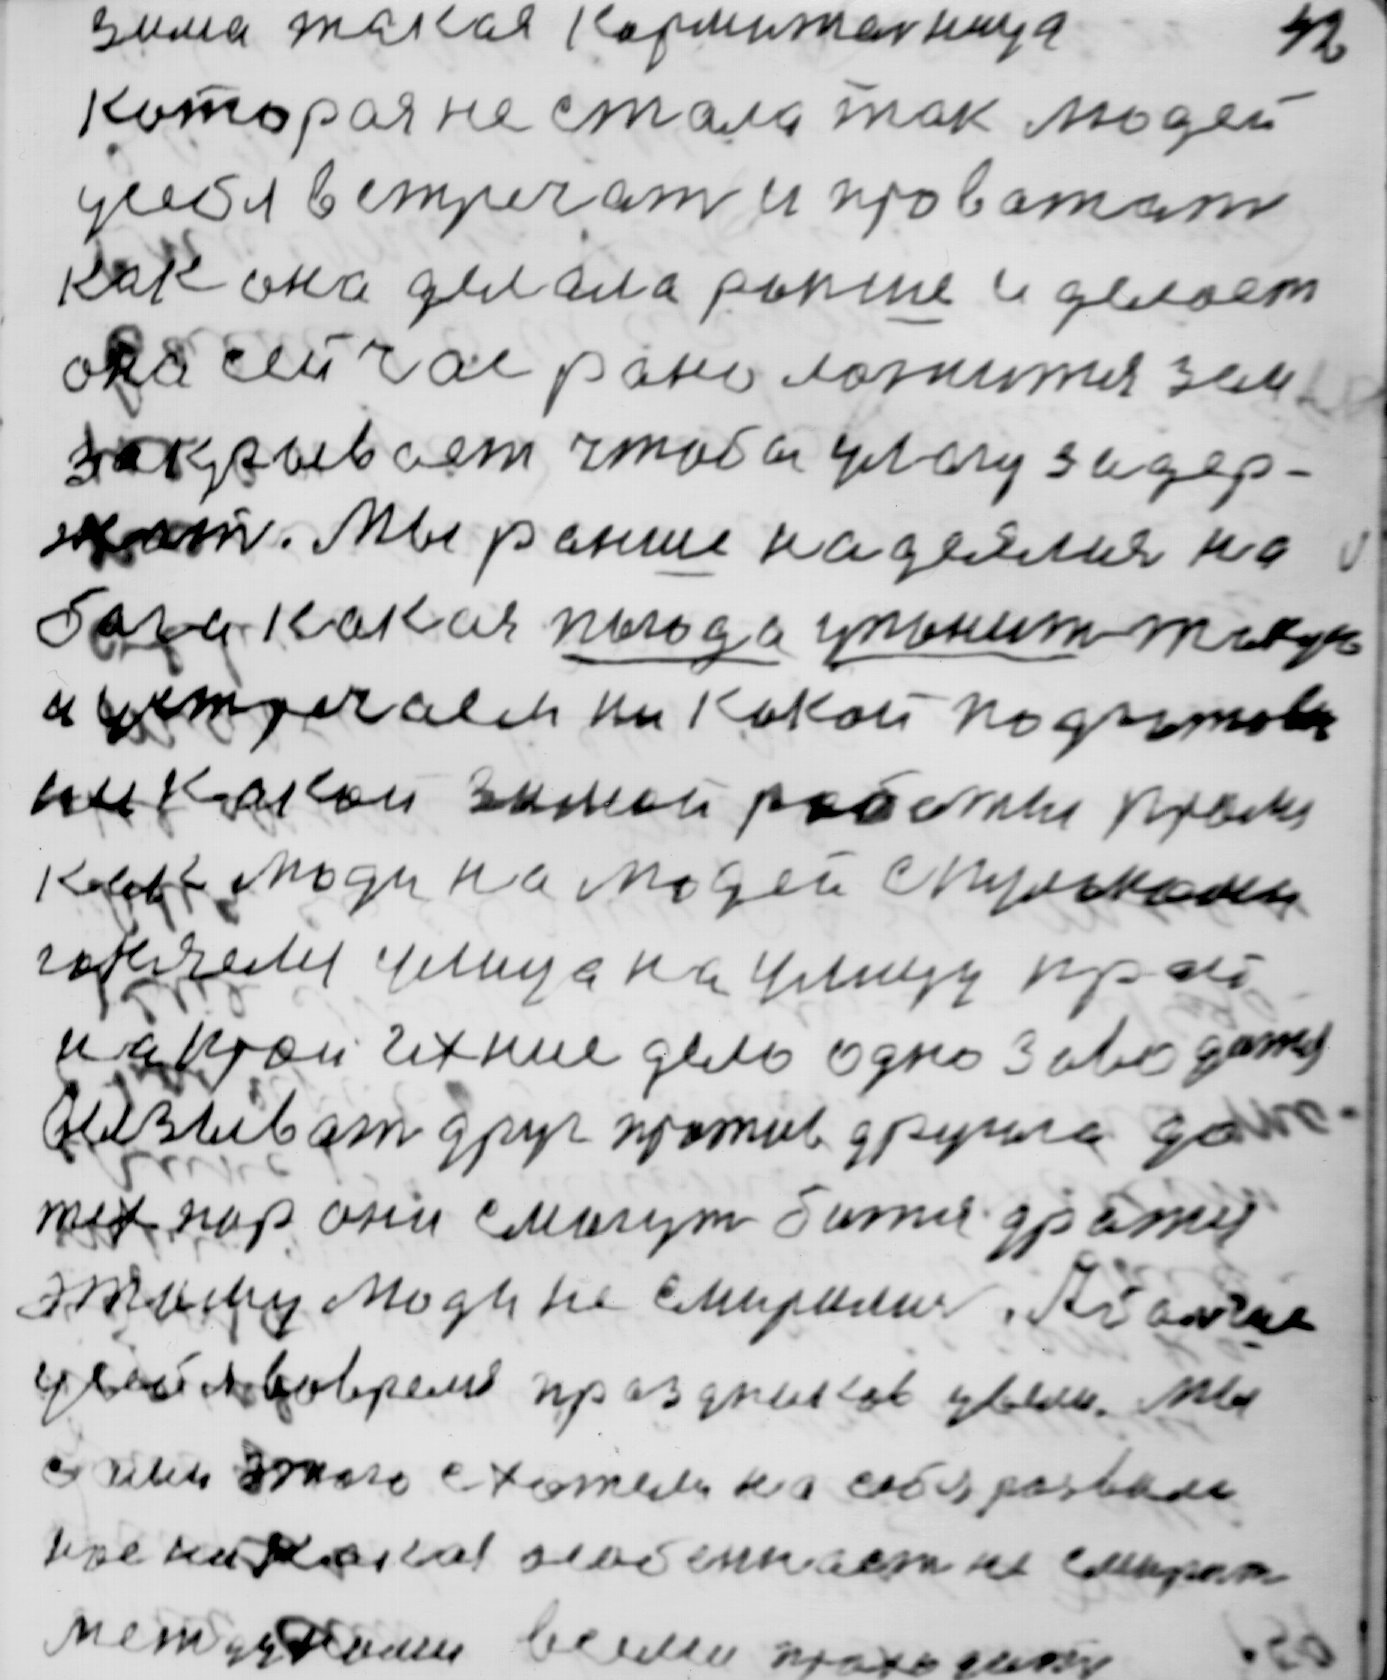 зима такая кормитарница 42
которая не стала так людей
усебя встречат и проватат
как она делала ранше и делает
она сейчас рано ложится зем
закрывает чтоба улагу задер-
жат. Мы ранше надеялия на
бога какая пыгода упанит такую
и устречаем ни какой подгытовки
ни какой зимой работы прямя
как люди на людей с пульками
улица на улицу край
на край ихние дело одно заводатя
визыват друг против другыга до
тех пор они смагут битя дратя
этыму люди не смирилия.
усебя вовремя празников увели. Мы
сами этого схатели на себя развили
нас ни какая особеннаст не смират
всеми праходит